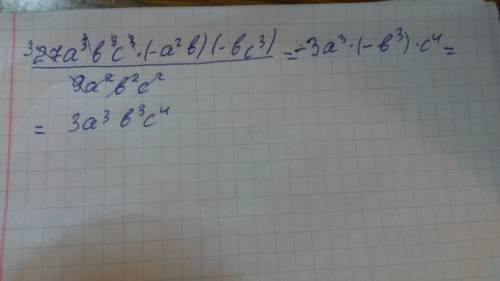 ³27a³в⁴c³·(-a²в)(-вc³) / 9a²в²c² = -3a³·(-в³)·c⁴ =
= 3a³в³c⁴